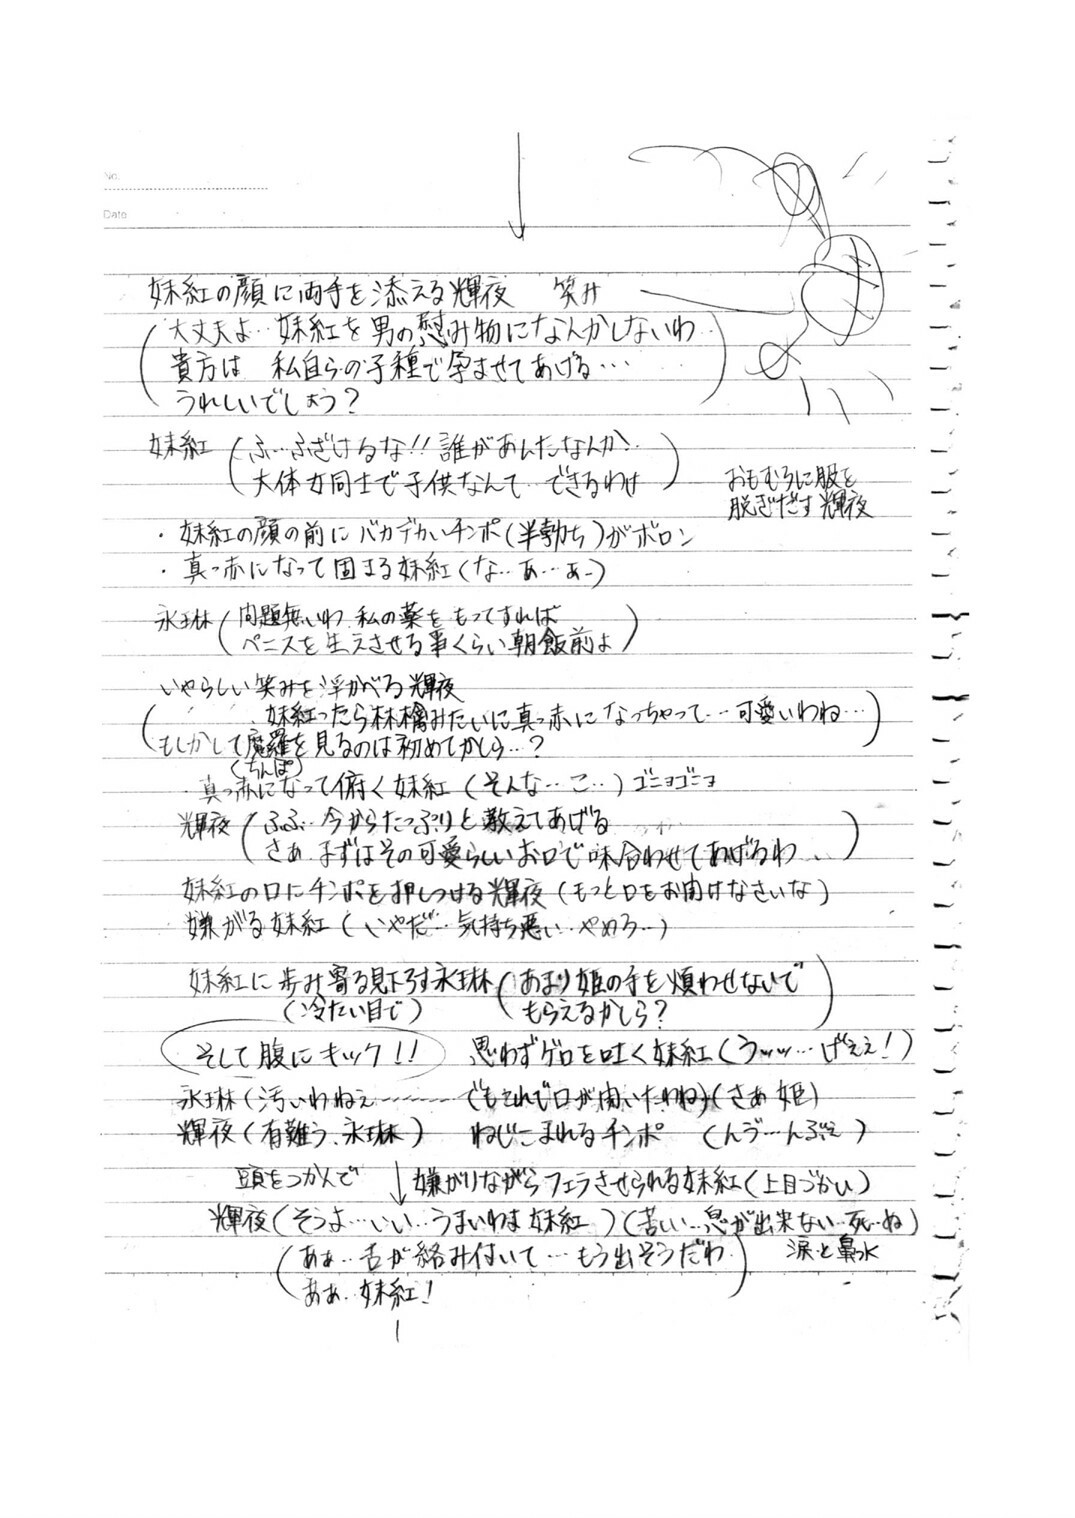 No.
Date
妹紅の顔に両手を添える輝夜 笑み
(大丈夫よ…妹紅を男の慰み物になんかしないわ…
貴方は 私自らの子種で孕ませてあげる…
うれしいでしょう?)
妹紅(ふ…ふざけるな!!誰があんたなんか…
大体女同士で子供なんて…できるわけ)
おもむろに服を
脱ぎだす輝夜
・妹紅の顔の前にバカデカいチンポ(半勃ち)がボロン
・真っ赤になって固まる妹紅(な…あ…あー)
永琳(問題無いわ 私の薬をもってすれば
ペニスを生えさせる事くらい朝飯前よ)
いやらしい笑みを浮かべる輝夜
(妹紅ったら林檎みたいに真っ赤になっちゃって…可愛いわね…
もしかして魔羅を見るのは初めてかしら…?)
(ちんぽ)
・真っ赤になって俯く妹紅(そんな…こ…)ゴニョゴニョ
輝夜(ふふ…今からたっぷりと教えてあげる
さあ、まずはその可愛らしいお口で味合わせてあげるわ…)
妹紅の口にチンポを押しつける輝夜(もっと口をお開けなさいな)
嫌がる妹紅(いやだ…気持ち悪い…やめろ…)
妹紅に歩み寄る見下ろす永琳(あまり姫の手を煩わせないで
(冷たい目で) もらえるかしら?)
そして腹にキック!! 思わずゲロを吐く妹紅(うッッ…げぇぇ!)
永琳(汚いわねぇ……でもこれで口が開いたわね)(さあ姫)
輝夜(有難う、永琳) ねじこまれるチンポ (んう…んぶぇ)
頭をつかんで 嫌がりながらフェラさせられる妹紅(上目づかい)
輝夜(そうよ…いい…うまいわよ妹紅)(苦しい…息が出来ない…死…ぬ)
(あぁ…舌が絡み付いて…もう出そうだわ 涙と鼻水
ああ…妹紅!)